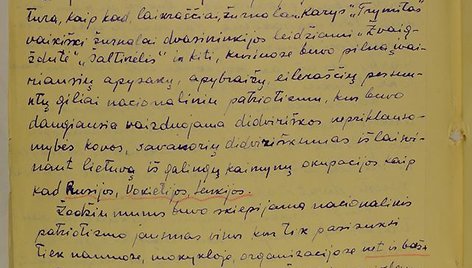 tura, kaip kad, laikraščiai, žurnalai „Karys" „Trymitas"
vaikiški žurnalai dvasininkijos leidžiami „Žvaig-
ždutė", „Šaltinėlis" ir kiti, kuriuose buvo pilna įvai-
riausių apysakų, apybraižų, eilerasčių persunk-
tų giliai nacionaliniu patriotizmu, kur buvo
daugiausia vaizduojama didvyriškos nepriklauso-
mybės kovos, savanorių didviriškumas išlaisvi-
nant Lietuvą iš galingų kaimynų okupacijos kaip
kad Rusijos, Vokietijos, Lenkijos.
Žodžiu mums buvo skiepijama nacionalinis
patriotizmo jausmas visur kur tik pasisuksi
tiek namuose, mokykloje, organizacijose net ir baž-